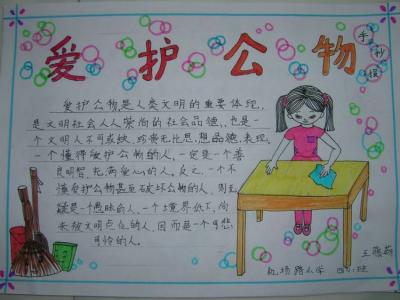 爱护公物
手抄报
爱护公物是人类文明的重要体现,
是文明社会人人崇尚的社会品德,也是一
个文明人不可或缺,珍贵无比思想品德,表现。
一个懂得爱护公物的人,一定是一个善
良明智,充满爱心的人,反之,一个不
懂爱护公物甚至破坏公物的人,则无
疑是一个愚昧的人,一个境界低下,尚
未被文明点化的人,因而是一个可悲
可怜的人。
王
机场路小学 四
班